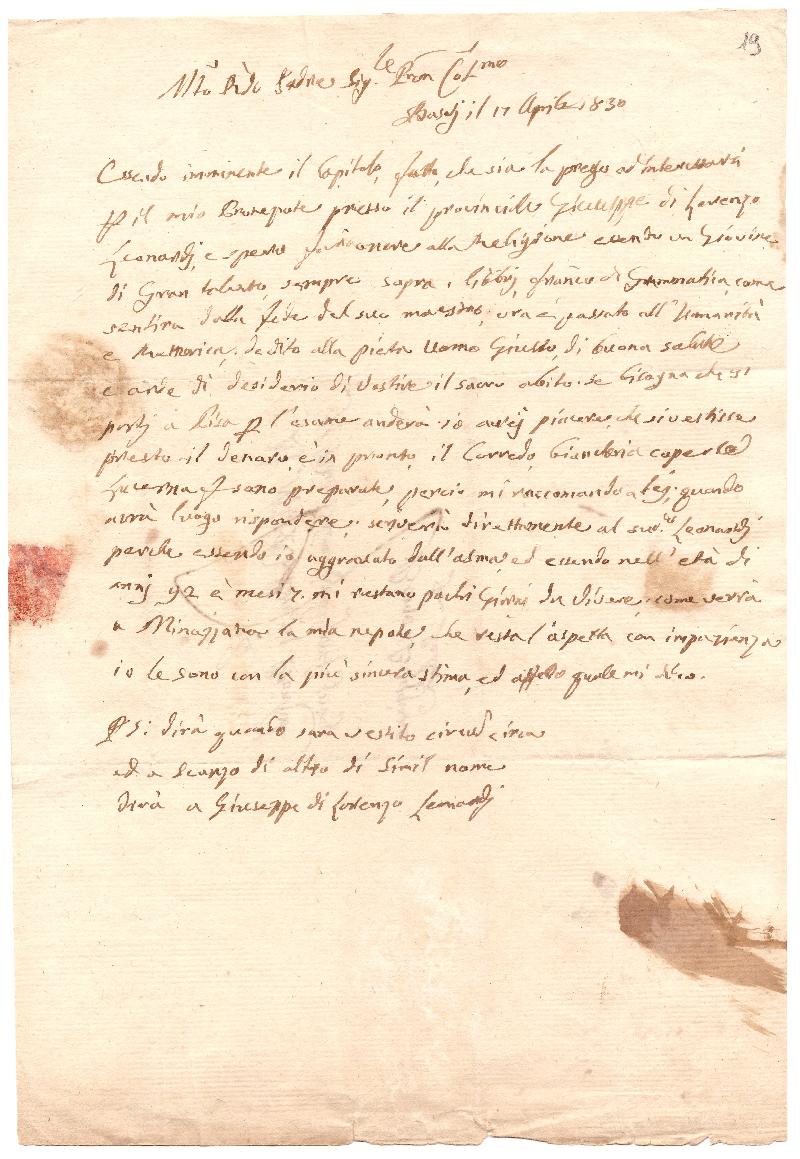 19
Mto Rdo Padre Sig.le Pron Colmo
Baselj il 17 Aprile 1830
Essendo imminente il Capitolo, fatto, che sia la prego ad interessarsi
P il mio Bronepote presso il provinciale Giuseppe di Lorenzo
Leonardj, e spero farà onore alla Religione essendo un Giovine
di Gran talento sempre sopra i libbrj, franco di Grammatica, come
sentirà dalla fede del suo maestro, ora è passato all'Umanità
e Rettorica, dedito alla pietà Uomo Giusto, di buona salute
e arde di desiderio di vestire il sacro abito. se bisogna che si
portj a Pisa P l'esame anderà. io averej piacere, che si vestisse
presto il denaro è in pronto, il Corredo, biancheria coperte
Lucerna sono preparate, perciò mi raccomando a lej, quando
avrà luogo rispondere, scriverà direttamente al sud.to Leonardj
perche essendo io aggravato dall'asma, ed essendo nell'età di
annj 92 è mesi 7. mi restano pochi Giorni da vivere, come verrà
a Minazzana la mia nepote, che resta l'aspetta con impazienza
io le sono con la più sincera stima, ed affetto quale mi dico.
P Si dirà quando sarà vestito circa
ed a scanzo di altro di simil nome
dirà a Giuseppe di Lorenzo Leonardj